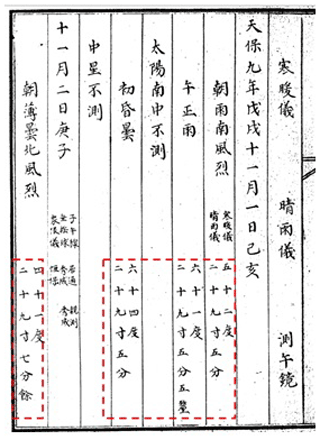 寒暖儀 晴雨儀 測午鏡
天保九年戊戌十一月一日己亥
朝雨南風烈 寒暖儀 五十二度
晴雨儀 二十九寸五分
午正雨 六十一度
二十九寸五分五釐
太陽南中不測
初昏曇 六十四度
二十九寸五分
中星不測
十一月二日庚子
子午線
秀成 秀成
朝薄曇北風烈 四十一度
二十九寸七分餘